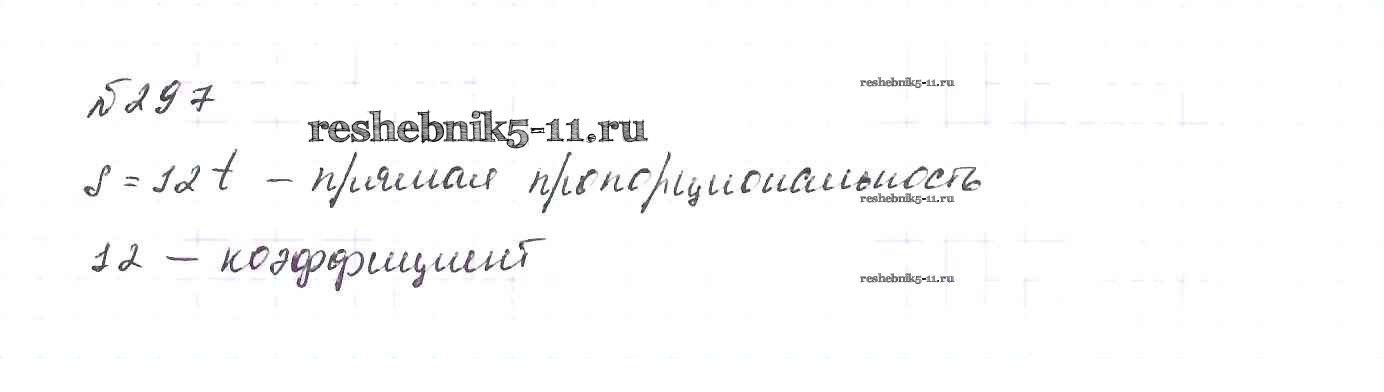 №297
reshebnik5-11.ru
reshebnik5-11.ru
S = 12t – прямая пропорциональность
reshebnik5-11.ru
12 – коэффициент
reshebnik5-11.ru